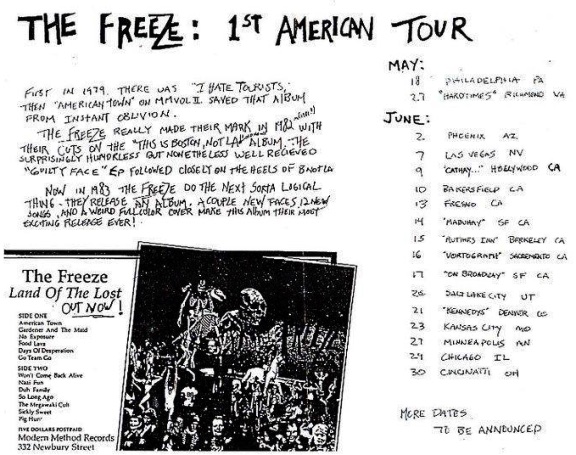 THE FREEZE: 1ST AMERICAN TOUR
FIRST IN 1979. THERE WAS "I HATE TOURISTS,"
THEN "AMERICAN TOWN" ON MMVOL II. SAVED THAT ALBUM
FROM INSTANT OBLIVION.
THE FREEZE REALLY MADE THEIR MARK IN 1982 WITH
THEIR CUTS ON THE "THIS IS BOSTON, NOT LA" ALBUM. THE
SURPRISINGLY HUMORLESS BUT NONETHELESS WELL RECIEVED
"GUILTY FACE" EP FOLLOWED CLOSELY ON THE HEELS OF BNOTLA
NOW IN 1983 THE FREEZE DO THE NEXT SORTA LOGICAL
THING - THEY RELEASE AN ALBUM. A COUPLE NEW FACES, 12 NEW
SONGS, AND A WEIRD FULLCOLOR COVER MAKE THIS ALBUM THEIR MOST
EXCITING RELEASE EVER!
The Freeze
Land Of The Lost
OUT NOW!
SIDE ONE
American Town
Gardener And The Maid
No Exposure
Food Lava
Days Of Desperation
Go Team Go
SIDE TWO
Won't Come Back Alive
Nazi Fun
Duh Family
So Long Ago
The Megawaki Cult
Sickly Sweet
Pig Hunt
FIVE DOLLARS POSTPAID
Modern Method Records
332 Newbury Street
FREEZE
MAY:
18 PHILADELPHIA PA
27 "HARDTIMES" RICHMOND VA
JUNE:
2 PHOENIX AZ
7 LAS VEGAS NV
9 "CATHAY..." HOLLYWOOD CA
10 BAKERSFIELD CA
13 FRESNO CA
14 "MABUHAY" SF CA
15 "RUTHIES INN" BERKELEY CA
16 SACREMENTO CA
17 "ON BROADWAY" SF CA
SALT LAKE CITY UT
21 "KENNEDYS" DENVER CO
23 KANSAS CITY MO
27 MINNEAPOLIS
29 CHICAGO IL
30 CINCINATTI OH
MORE DATES
TO BE ANNOUNCED